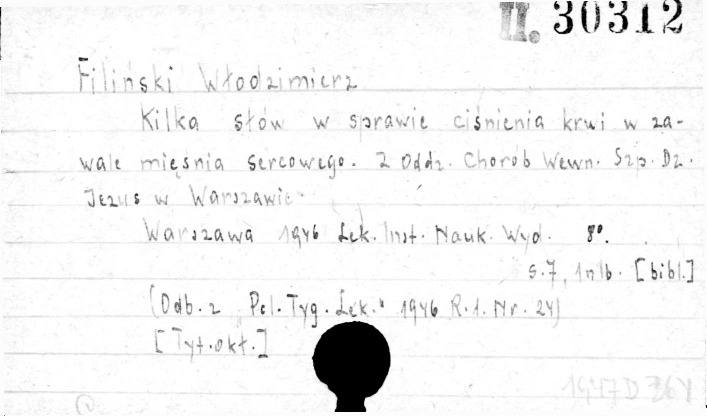 II. 30312
Filiński Włodzimierz
Kilka słów w sprawie ciśnienia krwi w za-
wale mięśnia sercowego. Z Oddz. Chorób Wewn. Szp. Dz.
Jezus w Warszawie.
Warszawa 1946 Lek. Inst. Nauk. Wyd. 8°.
s. 7, 1 nlb. [bibl.]
(Odb. z „Pol. Tyg. Lek." 1946 R. 1. Nr. 24)
[Tyt. okł.]
1947 D